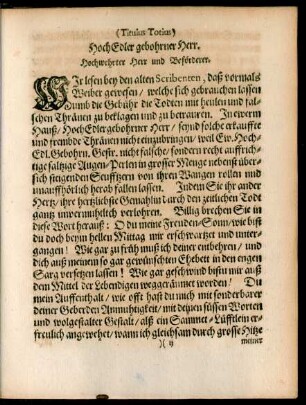 (Titulus Totius)
Hoch Edler gebohrner Herr.
Hochwehrter Herr und Beförderer.
WIr lesen bey den alten Scribenten, daß vormals
Weiber gewesen / welche sich gebrauchen lassen
umb die Gebühr die Todten mit heulen und fal-
schen Thränen zu beklagen und zu betrauren. In ewerm
Hauß / Hoch Edler gebohrner Herr / seynd solche erkauffte
und frembde Thränen nicht einzubringen / weil Ew. Hoch-
Edl. Gebohrn. Gestr. nicht falsche / sondern recht auffrich-
tige saltzige Augen-Perlen in grosser Menge nebenst über-
sich steigenden Seufftzern von ihren Wangen rollen und
unauffhörlich herab fallen lassen. Indem Sie ihr ander
Hertz / ihr hertzliebste Gemahlin durch den zeitlichen Todt
gantz unvermuhtlich verlohren. Billig brechen Sie in
diese Wort herauß: O du meine Freuden-Sonn / wie bist
du doch beym hellen Mittag mir erschwartzet und unter-
gangen! Wie gar zu früh muß ich deiner entbehren / und
dich auß meinem so gar gewünschten Ehebett in den engen
Sarg versetzen lassen! Wie gar geschwind bistu mir auß
dem Mittel der Lebendigen weggeräumet worden! Du
mein Auffenthalt / wie offt hast du mich mit sonderbarer
deiner Geberden Anmuhtigkeit / mit deinen süssen Worten
und wolgestalter Gestalt / alß ein Sammet-Lüfftlein er-
freulich angewehet / wann ich gleichsam durch grosse Hitze
)( ij
meiner